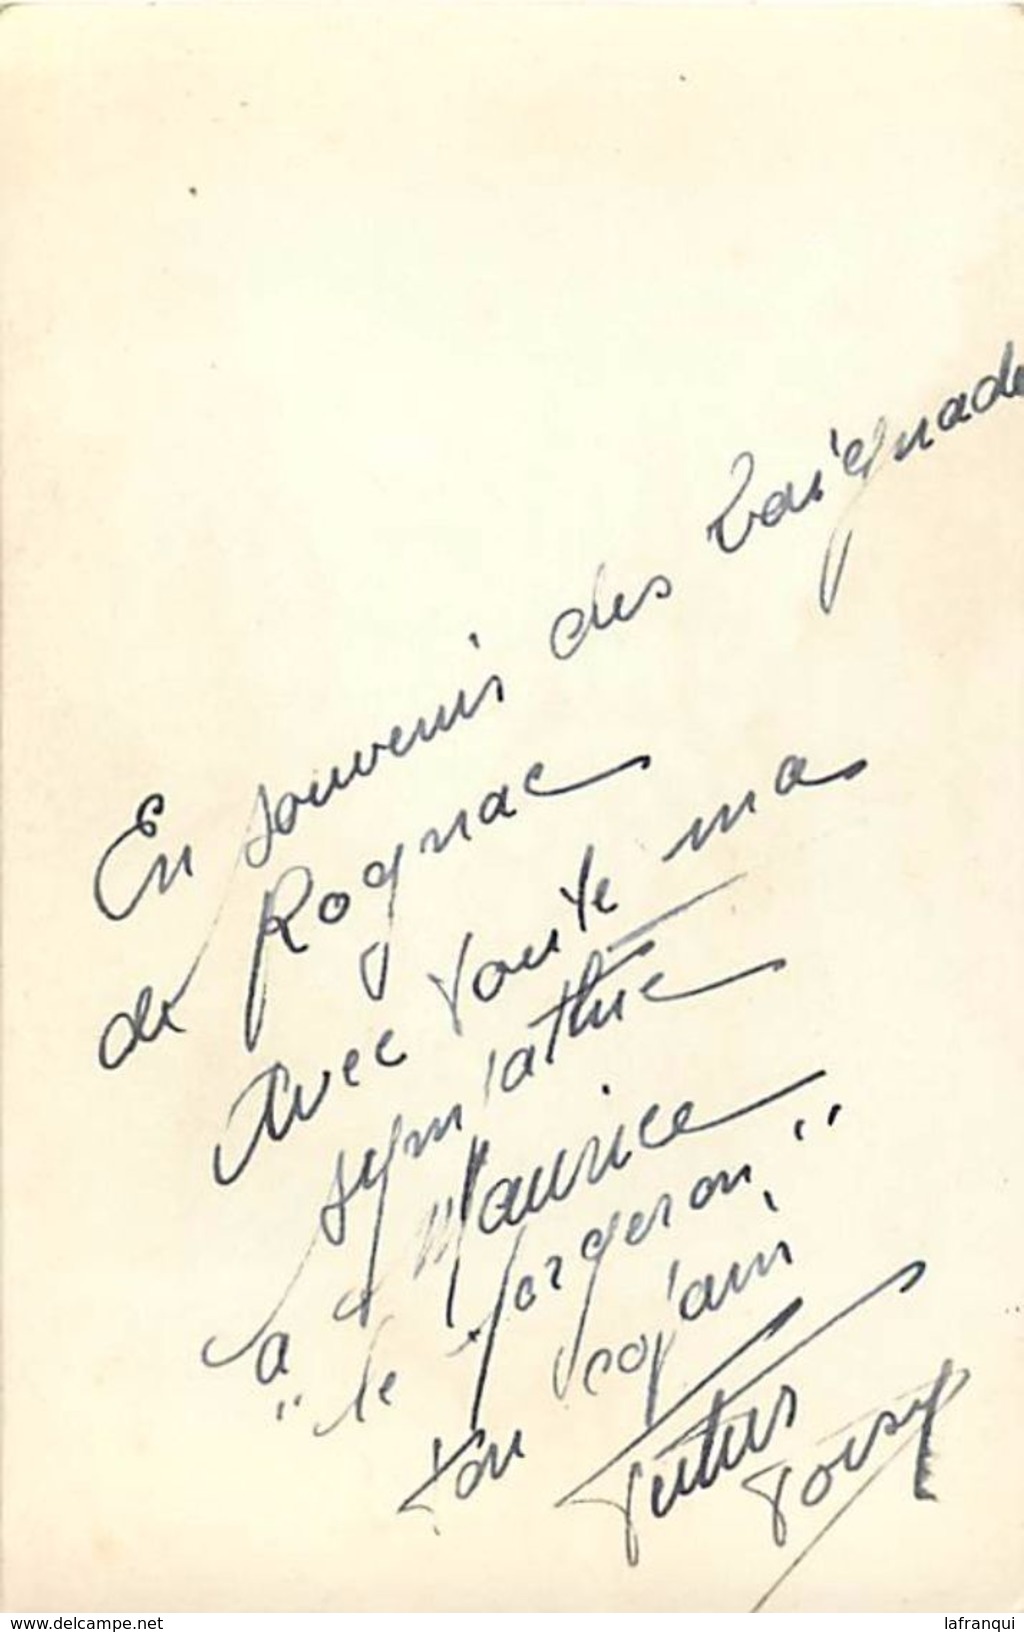 En souvenir des baignade
de Rognac
Avec toute ma
sympathie
a Maurice
"le forgeron"
ton copain
Titus
www.delcampe.net
lafranqui